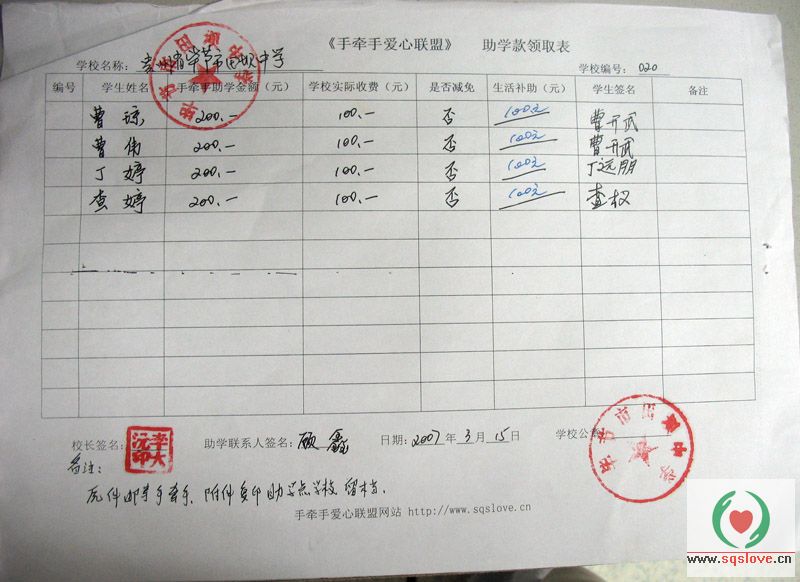 《手牵手爱心联盟》 助学款领取表
学校名称: 贵州省毕节市田坝中学 学校编号: 020
编号 学生姓名 手牵手助学金额（元） 学校实际收费（元） 是否减免 生活补助（元） 学生签名 备注
曹琼 200.— 100.— 否 100元 曹开武
曹伟 200.— 100.— 否 100元 曹开武
丁婷 200.— 100.— 否 100元 丁远朋
查婷 200.— 100.— 否 100元 查权
校长签名: 助学联系人签名: 顾鑫 日期: 2007年3月15日 学校公章
备注:
原件邮寄手牵手,附件复印助学点学校留档.
手牵手爱心联盟网站 http://www.sqslove.cn
www.sqslove.cn